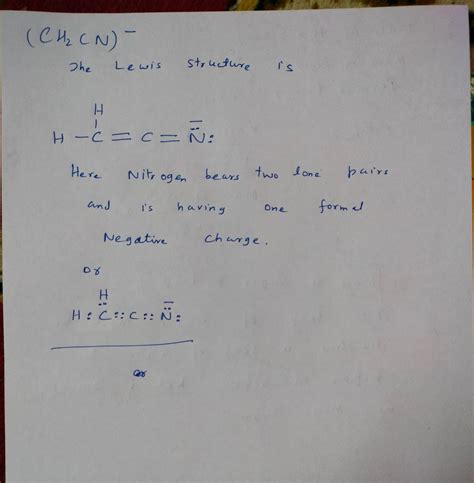 (CH₂CN)⁻
The Lewis structure is
H
|
H – C = C = N̈̄:
Here Nitrogen bears two lone pairs
and is having one formal
Negative charge.
Or
H
H : C̈ :: C :: N̈̄ :
or